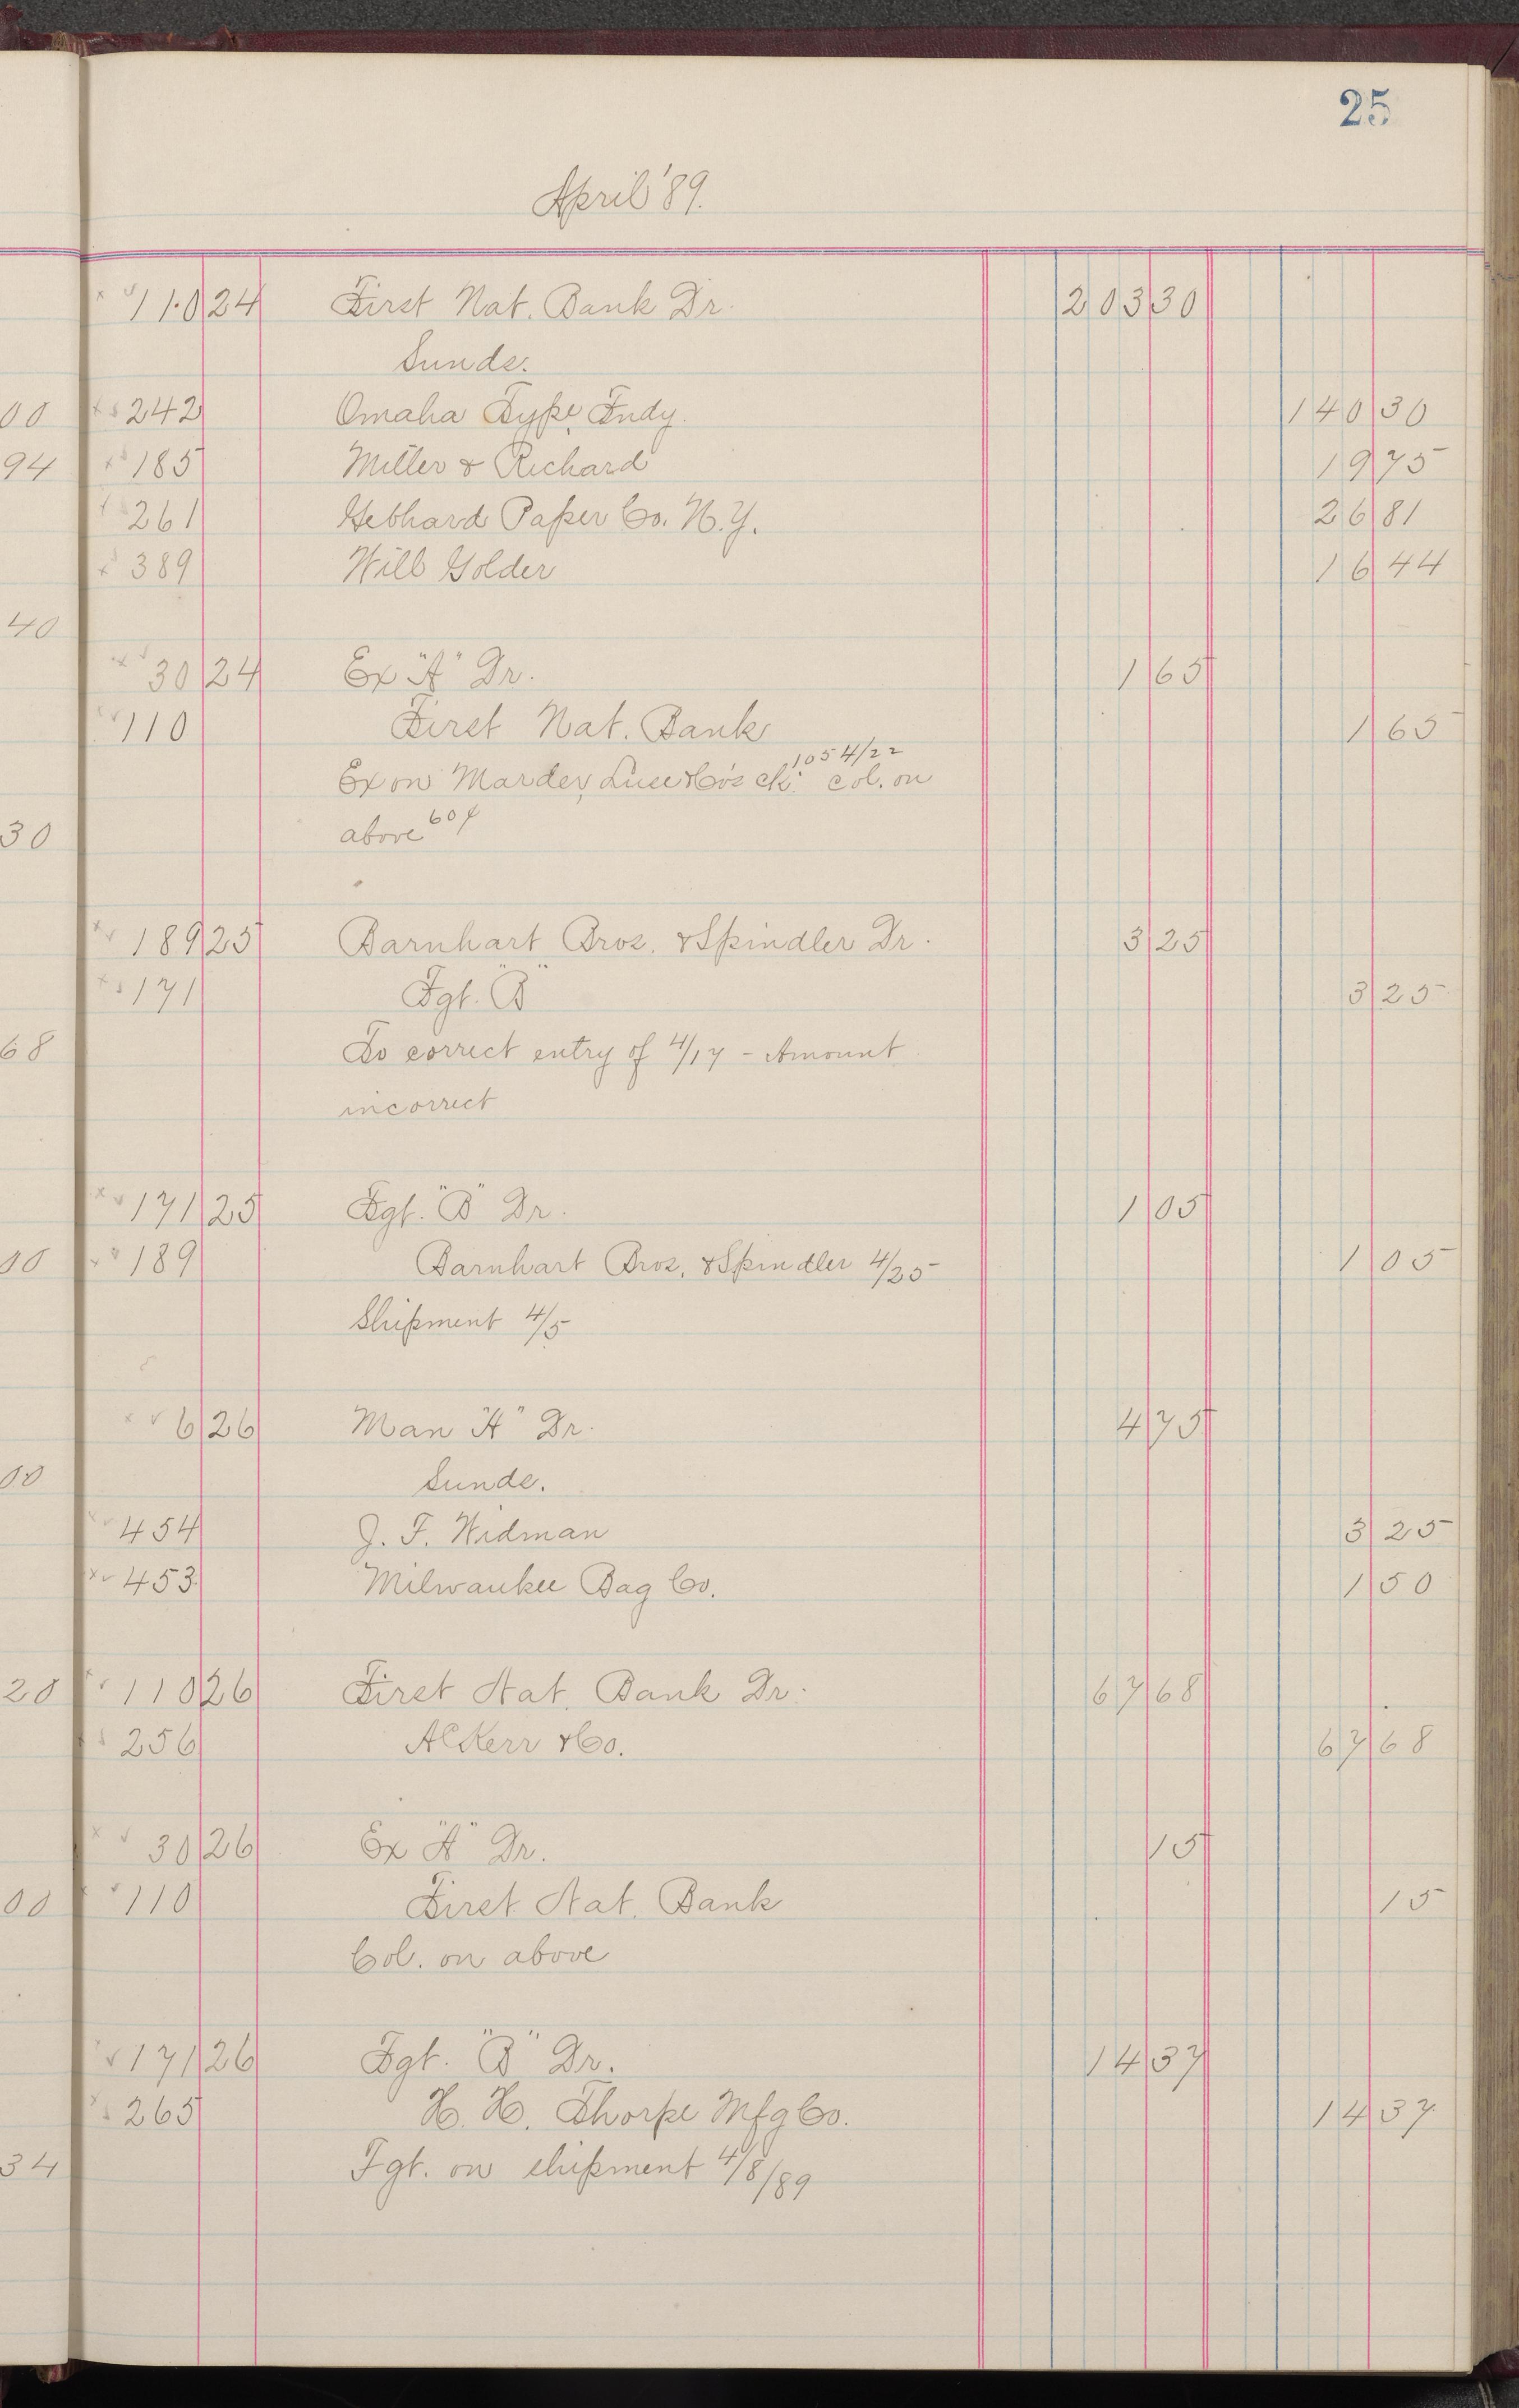 25
April '89.
110 24 First Nat. Bank Dr. 203 30
Sunds.
00 242 Omaha Type Fndy. 140 30
94 185 Miller & Richard 19 75
261 Gebhard Paper Co. N.Y. 26 81
389 Will Golder 16 44
40
30 24 Ex "A" Dr. 1 65
110 First Nat. Bank 1 65
Ex on Marder, Luse & Co's ck. 105 4/22 col. on
30 above 60¢
189 25 Barnhart Bros. & Spindler Dr. 3 25
171 Fgt. "B" 3 25
68 To correct entry of 4/17 - Amount
incorrect
171 25 Fgt. "B" Dr. 1 05
00 189 Barnhart Bros. & Spindler 4/25 1 05
Shipment 4/5
6 26 Man "A" Dr. 4 75
00 Sunds.
454 J. F. Widman 3 25
453 Milwaukee Bag Co. 1 50
20 110 26 First Nat. Bank Dr. 67 68
256 A C Kerr & Co. 67 68
30 26 Ex "A" Dr. 15
00 110 First Nat. Bank 15
Col. on above
171 26 Fgt. "B" Dr. 14 37
265 H. H. Thorpe Mfg Co. 14 37
34 Fgt. on shipment 4/8/89